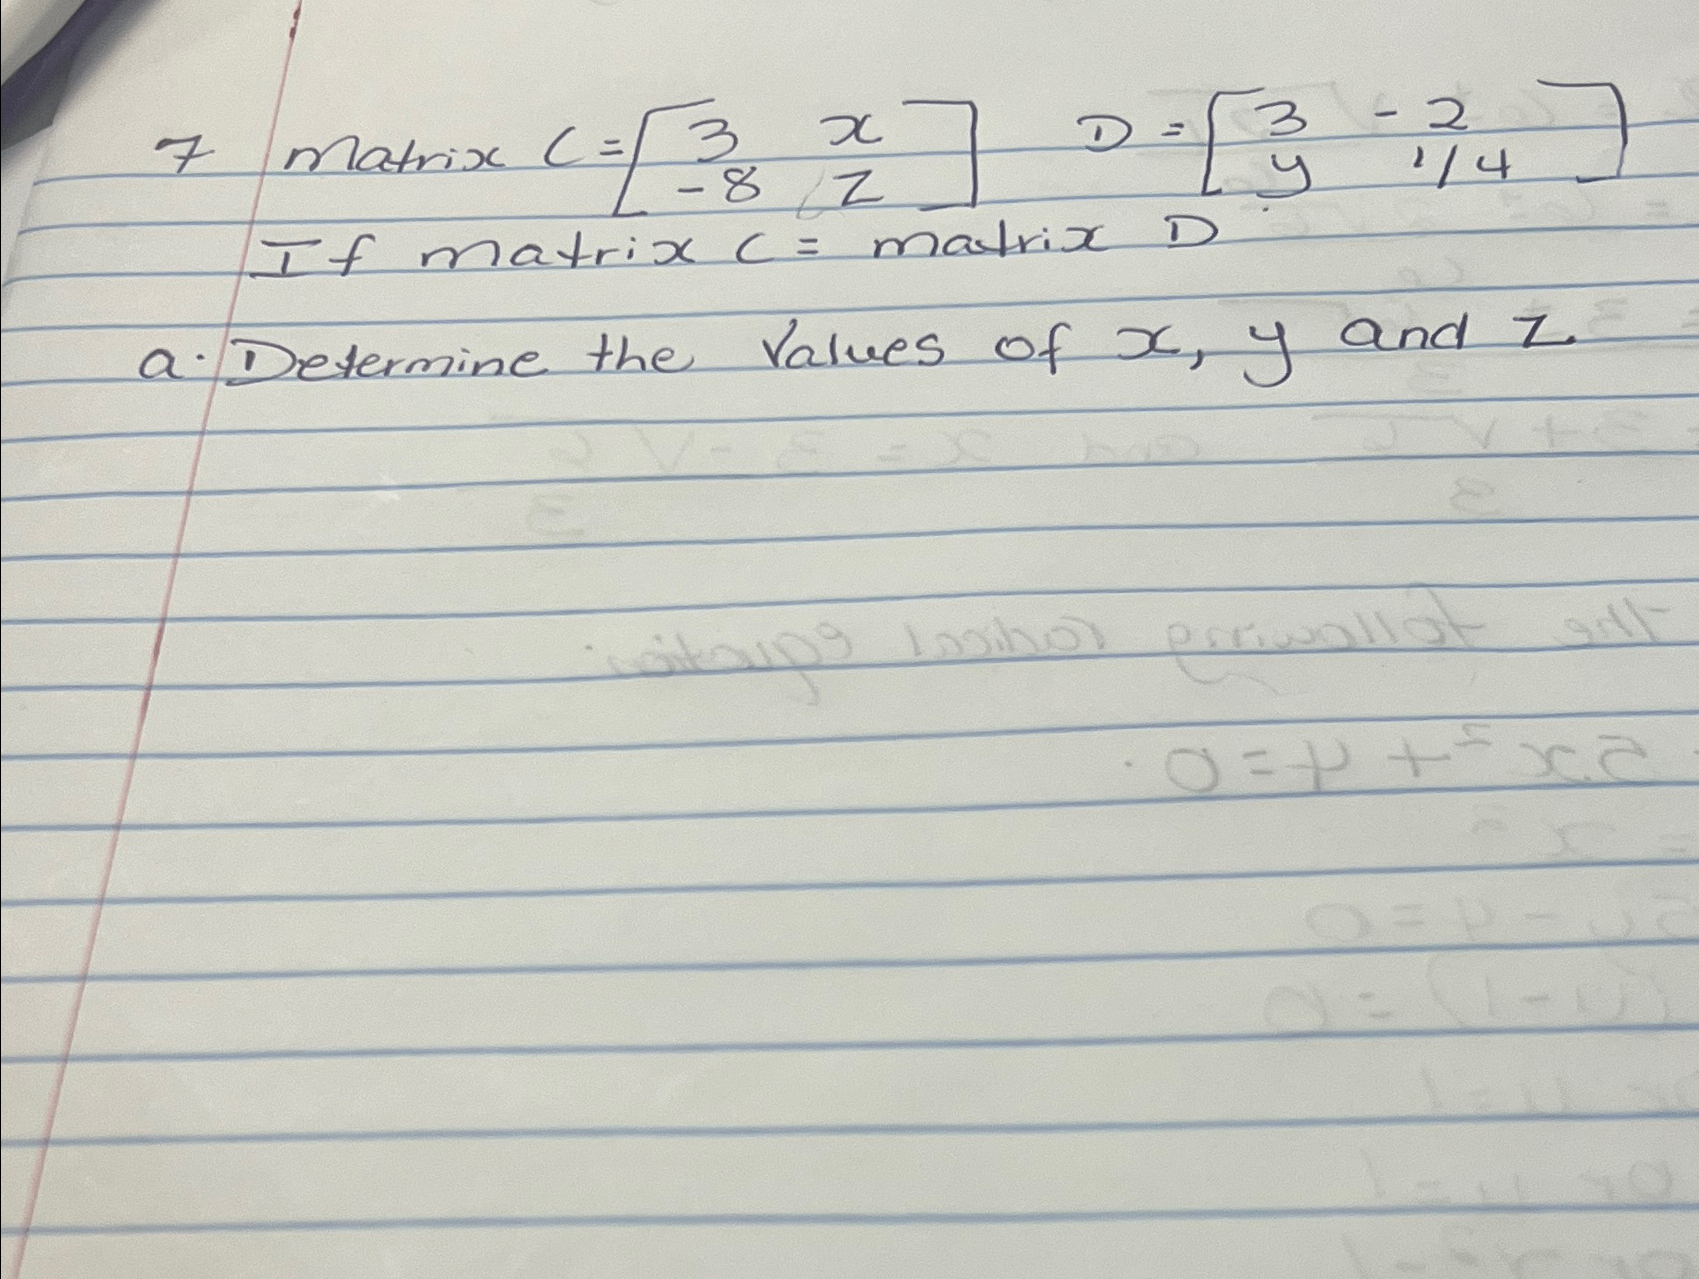 7 Matrix C = [3 x D = [3 -2
-8 z] y 1/4]
If matrix C = matrix D
a. Determine the Values of x, y and z.